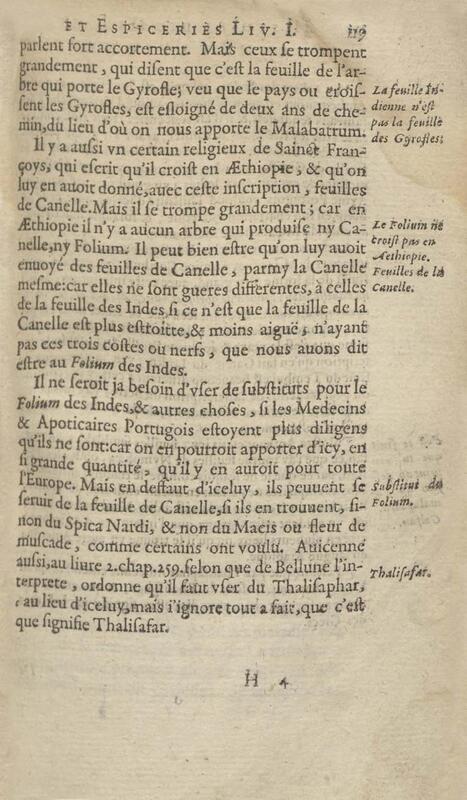 ET ESPICERIES LIV. I. 119
parlent fort accortement. Mais ceux se trompent
grandement, qui disent que c'est la feuille de l'ar-
bre qui porte le Gyrofle; veu que le pays ou crois-
sent les Gyrofles, est esloigné de deux ans de che-
min, du lieu d'où on nous apporte le Malabatrum.
La feuille In-
dienne n'est
pas la feuille
des Gyrofles;
Il y a aussi vn certain religieux de Sainct Fran-
çoys, qui escrit qu'il croist en Æthiopie, & qu'on
luy en auoit donné, auec ceste inscription, feuilles
de Canelle. Mais il se trompe grandement; car en
Æthiopie il n'y a aucun arbre qui produise ny Ca-
nelle, ny Folium. Il peut bien estre qu'on luy auoit
enuoyé des feuilles de Canelle, parmy la Canelle
mesme: car elles ne sont gueres differentes, à celles
de la feuille des Indes, si ce n'est que la feuille de la
Canelle est plus estroitte, & moins aiguë, n'ayant
pas ces trois costes ou nerfs, que nous auons dit
estre au Folium des Indes.
Le Folium ne
croist pas en
Aethiopie.
Feuilles de la
Canelle.
Il ne seroit ja besoin d'vser de substituts pour le
Folium des Indes, & autres choses, si les Medecins
& Apoticaires Portugois estoyent plus diligens
qu'ils ne sont: car on en pourroit apporter d'icy, en
si grande quantité, qu'il y en auroit pour toute
l'Europe. Mais en deffaut d'iceluy, ils peuuent se
seruir de la feuille de Canelle, si ils en trouuent, si-
non du Spica Nardi, & non du Macis ou fleur de
muscade, comme certains ont voulu. Auicenne
aussi, au liure 2. chap. 259. selon que de Bellune l'in-
terprete, ordonne qu'il faut vser du Thalisaphar,
au lieu d'iceluy, mais i'ignore tout a fait, que c'est
que signifie Thalisafar.
Substitut du
Folium.
Thalisafar.
H 4